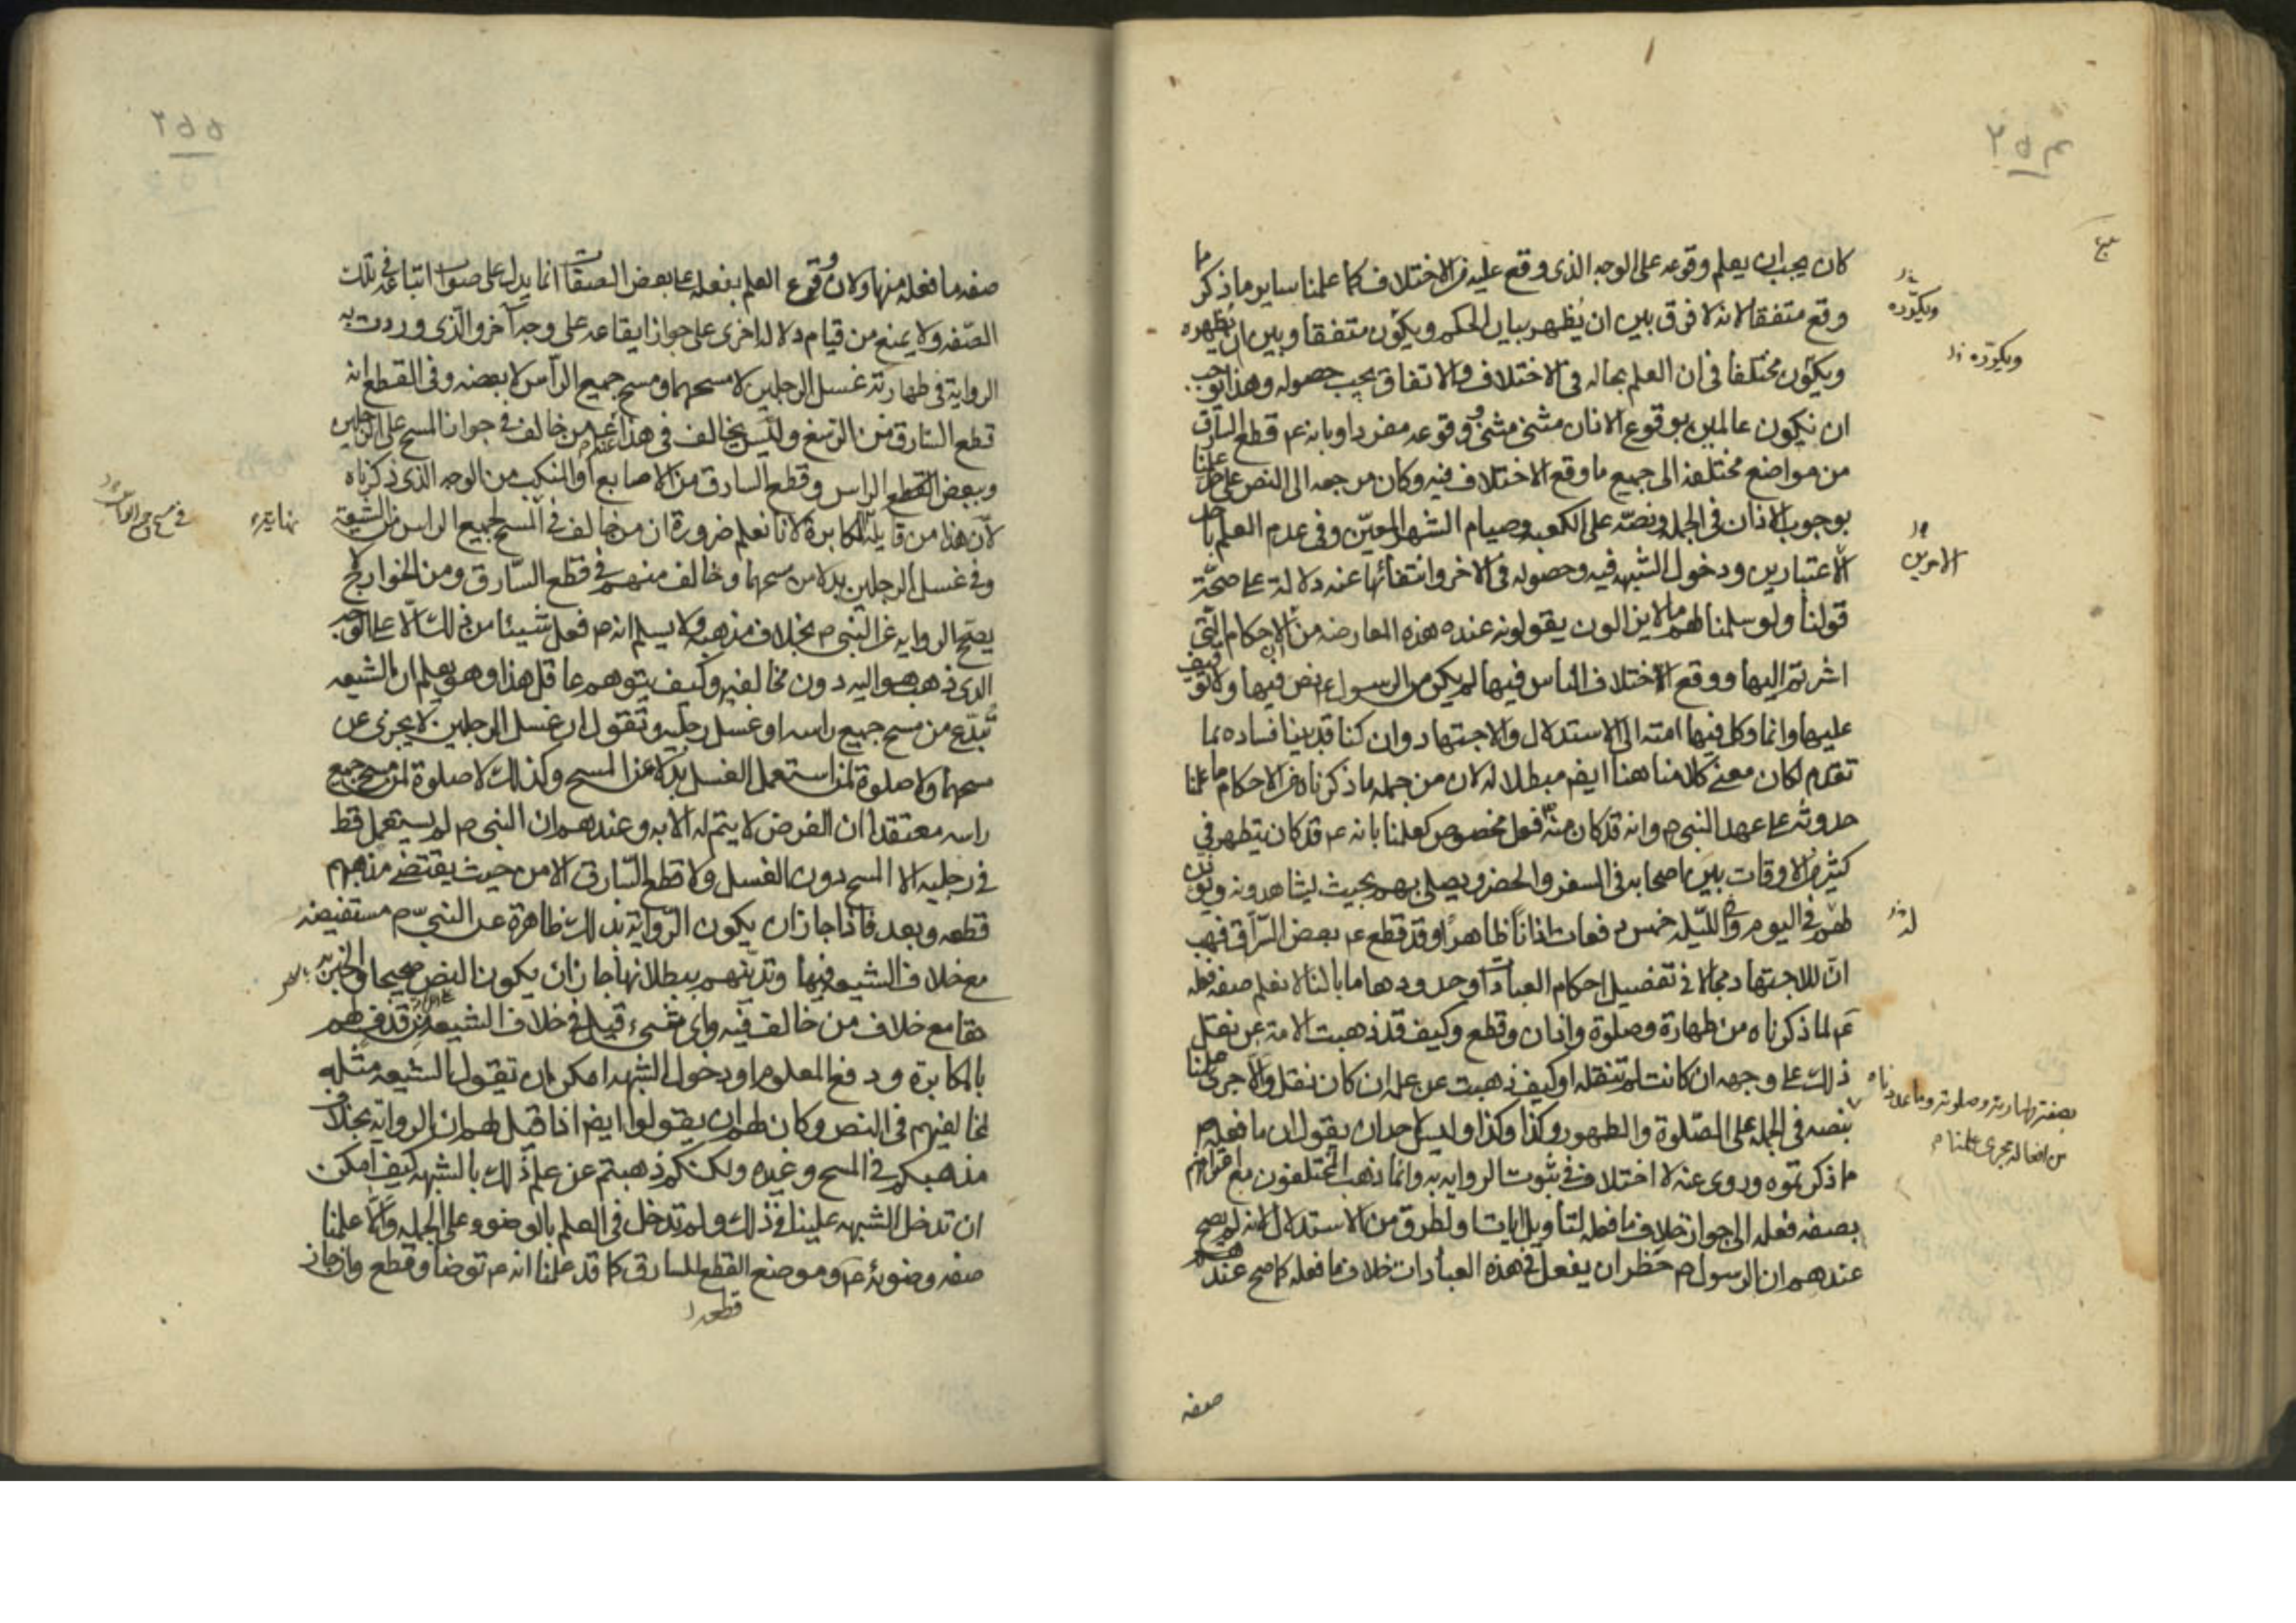 ٢٥٤
كان يجب ان يعلم وقوعه على الوجه الذى وقع عليه من الاختلاف كما علمنا ساير ما ذكر ما
وقع متفقا لانه لا فرق بين ان يُظهر بيان الحكم ويكون متفقا وبين ان يُظهره
ويكون مختلفا فى ان العلم بحاله فى الاختلاف والاتفاق يجب حصوله وهذا يوجب
ان نكون عالمين بوقوع الاذان مثنى مثنى ووقوعه مفردا وبانه ع قطع السارق
من مواضع مختلفة الى جميع ما وقع الاختلاف فيه وكان مرجعه الى النص على علمنا
بوجوب الاذان فى الجملة ونصّه على الكعبة وصيام الشهر المعيّن وفى عدم العلم باحد
الاعتبارين ودخول الشبهه فيه وحصوله فى الاخر وانتفائها عنه دلالة على صحّة
قولنا ولو سلمنا لهم ما لا يزالون يقولونه عند هذه المعارضه من ان الاحكام التى
اشرتم اليها ووقع اختلاف الناس فيها لم يكن من الرسول ع نص فيها ولا توقيف
عليها وانما وكل فيها امته الى الاستدلال والاجتهاد وان كنا قد بينا فساده بما
تقدم لكان معنى كلامنا هنا ايضم مبطلا له لان من جمله ما ذكرناه من الاحكام ما علمنا
حدوثه على عهد النبى م وانه قد كان منه فعل مخصوص كعلمنا بانه ع قد كان يتطهر فى
كثير من الاوقات بين اصحابه فى السفر والحضر ويصلى بهم بحيث يشاهدونه ويؤذن
لهم فى اليوم والليله خمس دفعات اذانا ظاهرا وقد قطع ع بعض السرّاق فهب
انّ للاجتهاد مجالا فى تفصيل احكام العبادات وحدودها ما بالنا لا نعلم صفه فعله
ع لما ذكرناه من طهارة وصلوة واذان وقطع وكيف قد ذهبت الامة عن نقل
ذلك على وجهه ان كانت لم تنقله او كيف ذهبت عن علمه ان كان نقل والا جرى علمنا
بنصه فى الجمله على الصّلوة والطهور وكذا وكذا وليس لاحد ان يقول ان ما فعله م
ما ذكرتموه وروى عنه لا اختلاف فى ثبوت الرواية به وانما ذهب المختلفون مع اقرارهم
بصفه فعله الى جواز خلاف ما فعله لتأويل ايات ولطرق من الاستدلال لانه لم يصح
عندهم ان الرسول م حظر ان يفعل فى هذه العبادات خلاف ما فعله كما صح عندهم
ويكوّنه
ويكوّنه
الامرين
له
بصفة طهارته وصلوته وما عددناه
من افعاله مجرى علمنا م
صفه
٢٥٥
صفه ما فعله منها ولان وقوع العلم بفعله على بعض الصفات انما يدل على صواب اتباعه فى تلك
الصّفه ولا يمنع من قيام دلاله اخرى على جواز ايقاعه على وجه آخر والّذى وردت به
الرواية فى طهارته غسل الرجلين لا مسحهما ومسح جميع الرأس لا بعضه وفى القطع انه
قطع السارق من الرسغ وليس يخالف فى هذا عنه من خالف فى جواز المسح على الرجلين
وببعض الراس وقطع السارق من الاصابع او المنكب من الوجه الذى ذكرناه
لأنّ هذا من قايله مكابرة لانا نعلم ضرورة ان من خالف فى المسح لجميع الراس من الشيعة
وفى غسل الرجلين بدلا من مسحهما وخالف منهم فى قطع السّارق ومن الخوارج لا
يصحّح الرواية عن النبى م بخلاف مذهبه ولا يسلم انه م فعل شيئا من ذلك الّا على الوجه
الذى ذهب هو اليه دون مخالفيه وكيف يتوهم عاقل هذا وهو يعلم ان الشيعه
تبدّع من مسح جميع راسه او غسل رجليه وتقول ان غسل الرجلين لا يجزى عن
مسحهما ولا صلوة لمن استعمل الغسل بدلا عن المسح وكذلك لا صلوة لمن مسح جميع
راسه معتقدا ان الفرض لا يتم له الا به وعندهم ان النبى م لم يستعمل قط
فى رجليه الا المسح دون الغسل ولا قطع السّارق الا من حيث يقتضى مذهبهم
قطعه وبعد فاذا جاز ان يكون الرّواية بذلك ظاهرة عن النبىّ م مستفيضه
مع خلاف الشيعه فيها وتديّنهم ببطلانها جاز ان يكون النص صحيحا والخبر به
حقا مع خلاف من خالف فيه واى شىء قيل فى خلاف الشيعة من قذفهم
بالمكابرة ودفع المعلوم او دخول الشبهه امكن ان تقول الشيعه مثله
لمخالفيهم فى النص وكان لهم ان يقولوا ايضم اذا قيل لهم ان الرواية بخلاف
مذهبكم فى المسح وغيره ولكنكم ذهبتم عن علم ذلك بالشبهه كيف امكن
ان تدخل الشبهه علينا فى ذلك ولم تدخل فى العلم بالوضوء على الجمله والّا علمنا
صفه وضوئه م وموضع القطع للسارق كما قد علمنا انه م توضأ وقطع وان جاز
قطعه